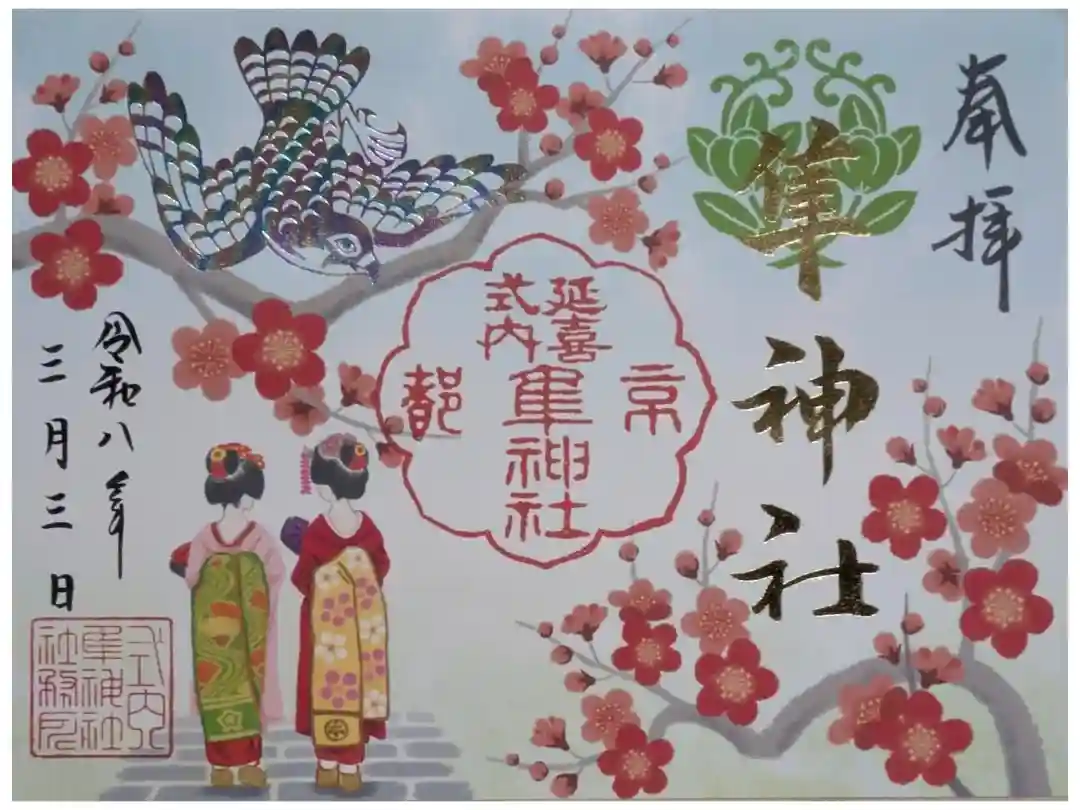 奉拝
隼神社
延喜
式内
京都
隼神社
令和八年
三月三日
式内
隼神社
社務所